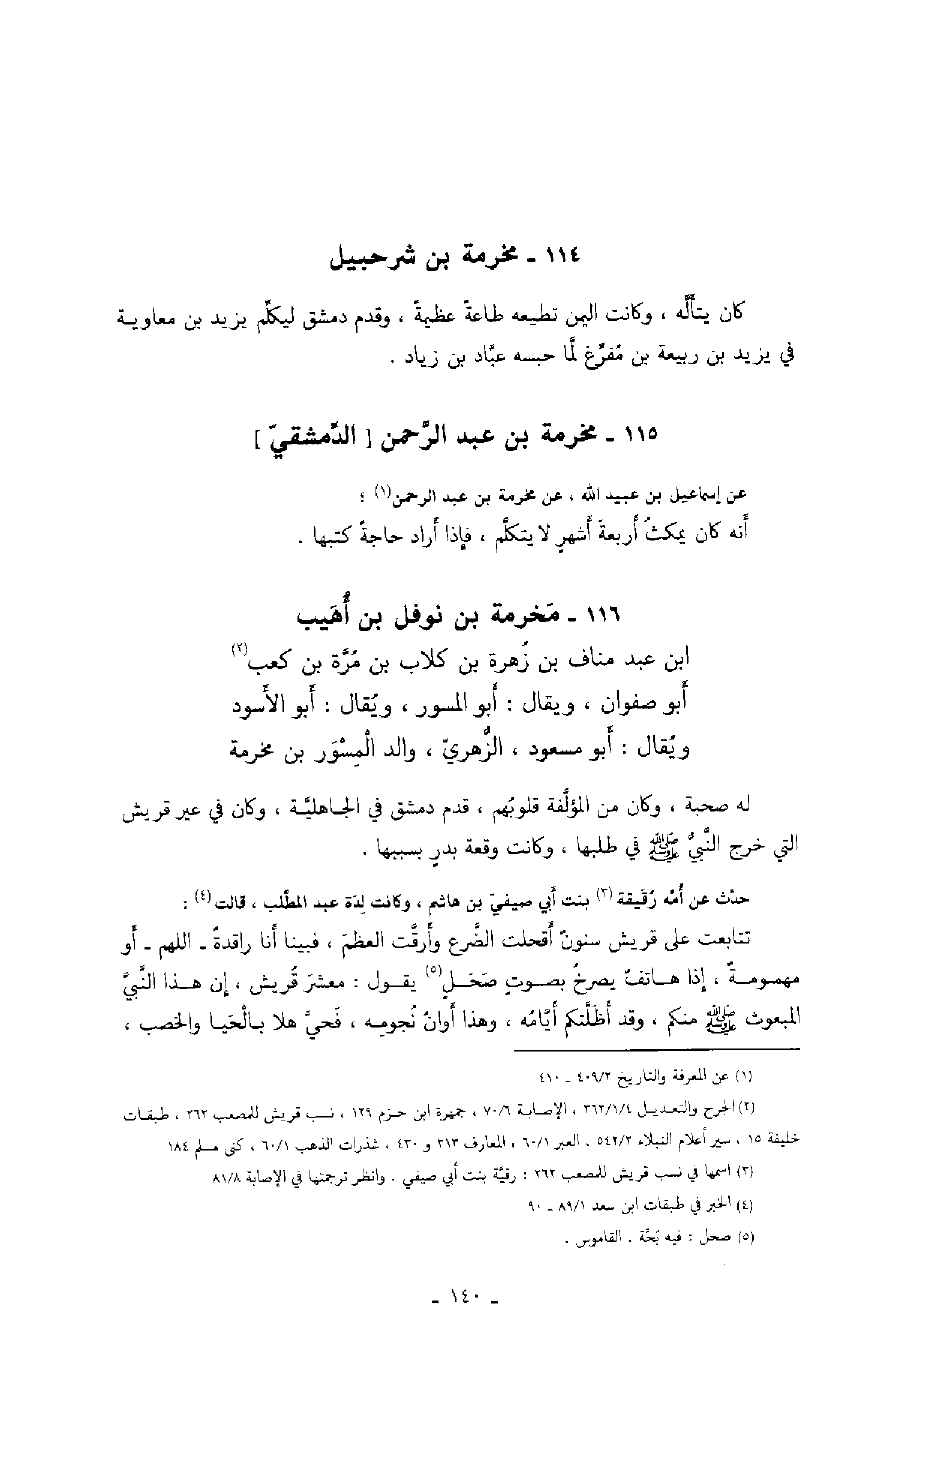 ١١٤ - مخرمة بن شرحبيل
كان يتألَّه ، وكانت اليمن تطيعه طاعةً عظيمةً ، وقدم دمشق ليكلِّم يزيد بن معاوية
في يزيد بن ربيعة بن مُفرِّغ لمَّا حبسه عبَّاد بن زياد .
١١٥ - مخرمة بن عبد الرَّحمن [ الدِّمشقيّ ]
عن إسماعيل بن عبيد الله ، عن مخرمة بن عبد الرحمن(١) ؛
أَنه كان يمكثُ أَربعةَ أَشهرٍ لا يتكلَّم ، فإذا أَراد حاجةً كتبها .
١١٦ - مَخرمة بن نوفل بن أُهَيب
ابن عبد مناف بن زُهرة بن كلاب بن مُرَّة بن كعب(٢)
أَبو صفوان ، ويقال : أَبو المسور ، ويُقال : أَبو الأَسود
ويُقال : أَبو مسعود ، الزُّهريّ ، والد الْمِسْوَر بن مخرمة
له صحبة ، وكان من المؤلَّفة قلوبُهم ، قدم دمشق في الجاهليَّة ، وكان في عير قريش
التي خرج النَّبيُّ ﷺ في طلبها ، وكانت وقعة بدرٍ بسببها .
حدَّث عن أُمِّه رُقَيقة(٣) بنت أَبي صيفيّ بن هاشم ، وكانت لِدَة عبد المطَّلب ، قالت(٤) :
تتابعت على قريش سنونٌ أَقحلت الضَّرع وأَرقَّت العظمَ ، فبينا أَنا راقدةٌ - اللهم - أَو
مهمومةٌ ، إذا هاتفٌ يصرخُ بصوتٍ صَحَلٍ(٥) يقول : معشرَ قُريش ، إن هذا النَّبيَّ
المبعوث ﷺ منكم ، وقد أَظلَّتكم أَيَّامُه ، وهذا أَوانُ نُجومِه ، فَحيَّ هلا بالْحَيا والخصب ،
(١) عن المعرفة والتاريخ ٤٠٩/٢ - ٤١٠
(٢) الجرح والتعديل ٣٦٢/١/٤ ، الإصابة ٧٠/٦ ، جمهرة ابن حزم ١٢٩ ، نسب قريش للمصعب ٢٦٢ ، طبقات
خليفة ١٥ ، سير أعلام النبلاء ٥٤٢/٢ ، العبر ٦٠/١ ، المعارف ٣١٣ و ٤٣٠ ، شذرات الذهب ٦٠/١ ، كنى مسلم ١٨٤
(٣) اسمها في نسب قريش للمصعب ٢٦٢ : رقيَّة بنت أَبي صيفي . وانظر ترجمتها في الإصابة ٨١/٨
(٤) الخبر في طبقات ابن سعد ٨٩/١ - ٩٠
(٥) صحل : فيه بَحَّة . القاموس .
- ١٤٠ -